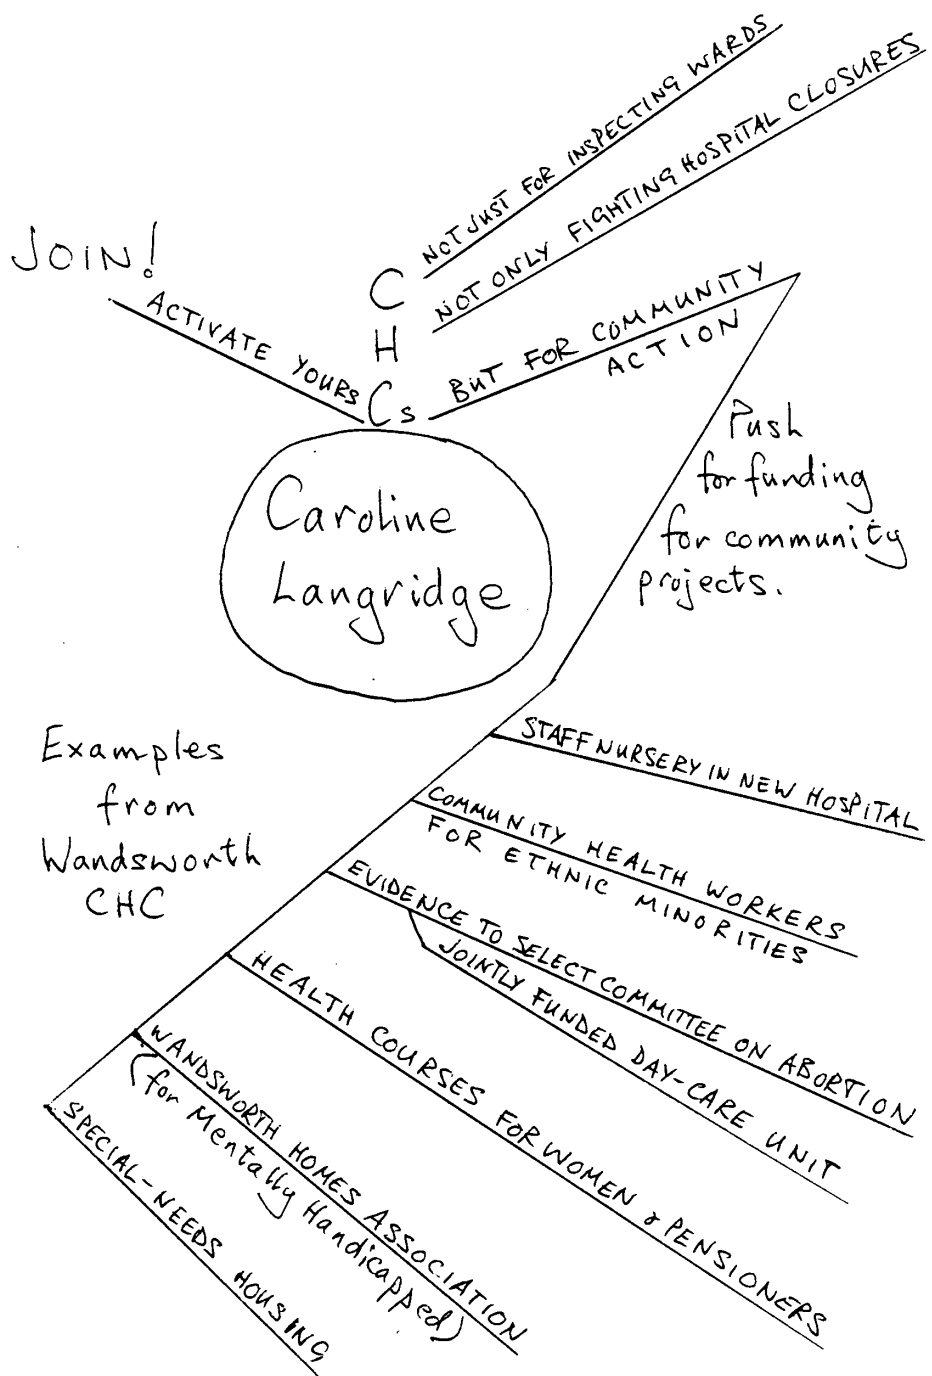 NOT JUST FOR INSPECTING WARDS
NOT ONLY FIGHTING HOSPITAL CLOSURES
JOIN!
ACTIVATE YOURS
C
H
Cs
BUT FOR COMMUNITY
ACTION
Push
for funding
for community
projects.
Caroline
Langridge
Examples
from
Wandsworth
CHC
STAFF NURSERY IN NEW HOSPITAL
COMMUNITY HEALTH WORKERS
FOR ETHNIC MINORITIES
EVIDENCE TO SELECT COMMITTEE ON ABORTION
JOINTLY FUNDED DAY-CARE UNIT
HEALTH COURSES FOR WOMEN & PENSIONERS
WANDSWORTH HOMES ASSOCIATION
(for Mentally Handicapped)
SPECIAL-NEEDS HOUSING